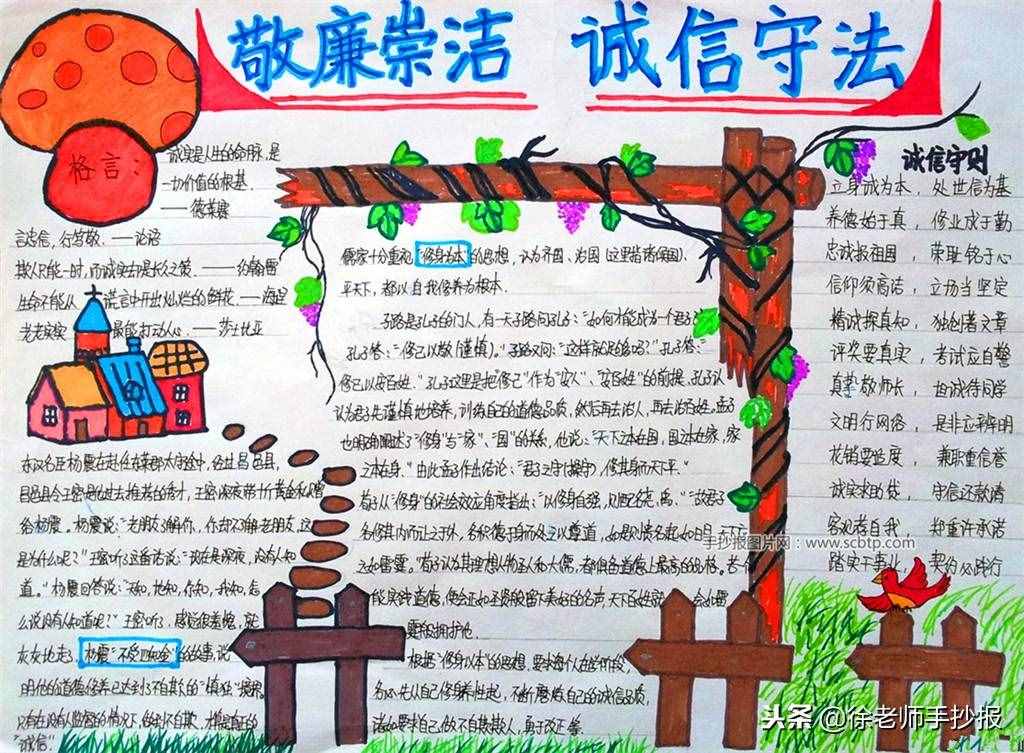 敬廉崇洁 诚信守法
格言：
诚实是人生的命脉，是
一切价值的根基．
—— 德莱赛
言忠信，行笃敬．——论语
欺人只能一时，而诚实却是长久之策．——约翰雷
生命不能从 谎言中开出灿烂的鲜花．——海涅
老老实实 最能打动人心．——莎士比亚
东汉名臣杨震在赴任东莱郡太守途中，经过昌邑县，
昌邑县令王密是他过去推荐的秀才，王密深夜带十斤黄金私赠
给杨震。杨震说："老朋友了解你，你却不了解老朋友，这
是为什么呢？"王密听了这番话说："现在是深夜，没有人知
道。"杨震回答说："天知，地知，你知，我知，怎
么说没有人知道呢？"王密听了，感觉很羞愧，就
灰灰地走，杨震"不受四知金"的故事，说
明他的道德修养已达到了不自欺的"慎独"境界
只有在没有人监督的情况下，做到不自欺，才是真正的
"诚信"．
儒家十分重视"修身为本"的思想，认为齐国、治国（这里指诸侯国）、
平天下，都以自我修养为根本．
子路是孔子的门人，有一天子路问孔子："如何才能成为一个君子
孔子答："修己以敬（谨慎）．"子路又问："这样就足够吗？"孔子答：
修己以安百姓．"孔子这里是把"修己"作为"安人"、"安百姓"的前提，孔子认
认为君子先谨慎地培养，训练自己的道德品质，然后再去治人，再去治百姓．孟子
也明确阐述了"修身"与"家"、"国"的关系，他说："天下之本在国，国之本在家，家
之本在身．"由此孟子作出结论："君子之守（操守），修其身而天下平．"
荀子从"修身"的社会效应角度指出："以修身自强，则配尧、禹．""故君子
务修其内而让之于外，务积德于身而处之以尊道，如是则贵名起如日月，天下
应之如雷霆．"
能实践道德，便会正如圣贤般留下美好的名声，天下百姓
要很拥护他．
根据"修身以本"的思想，要求每个人在各阶段，
务必先从自己修身养性起，不断磨炼自己的诚信品质，
诚信要求自己做不自欺欺人，勇于改正等．
诚信守则
立身诚为本，处世信为基
养德始于真，修业成于勤
忠诚报祖国，荣耻铭于心
信仰须高洁，立场当坚定
精诚探真知，独创著文章
评奖要真实，考试应自警
真挚敬师长，坦诚待同学
文明行网络，是非应辨明
花销要适度，兼职重信誉
诚实求助贷，守信还款清
客观荐自我，郑重许承诺
踏实干事业，契约必践行
手抄报图片网：www.scbtp.com
头条 @徐老师手抄报